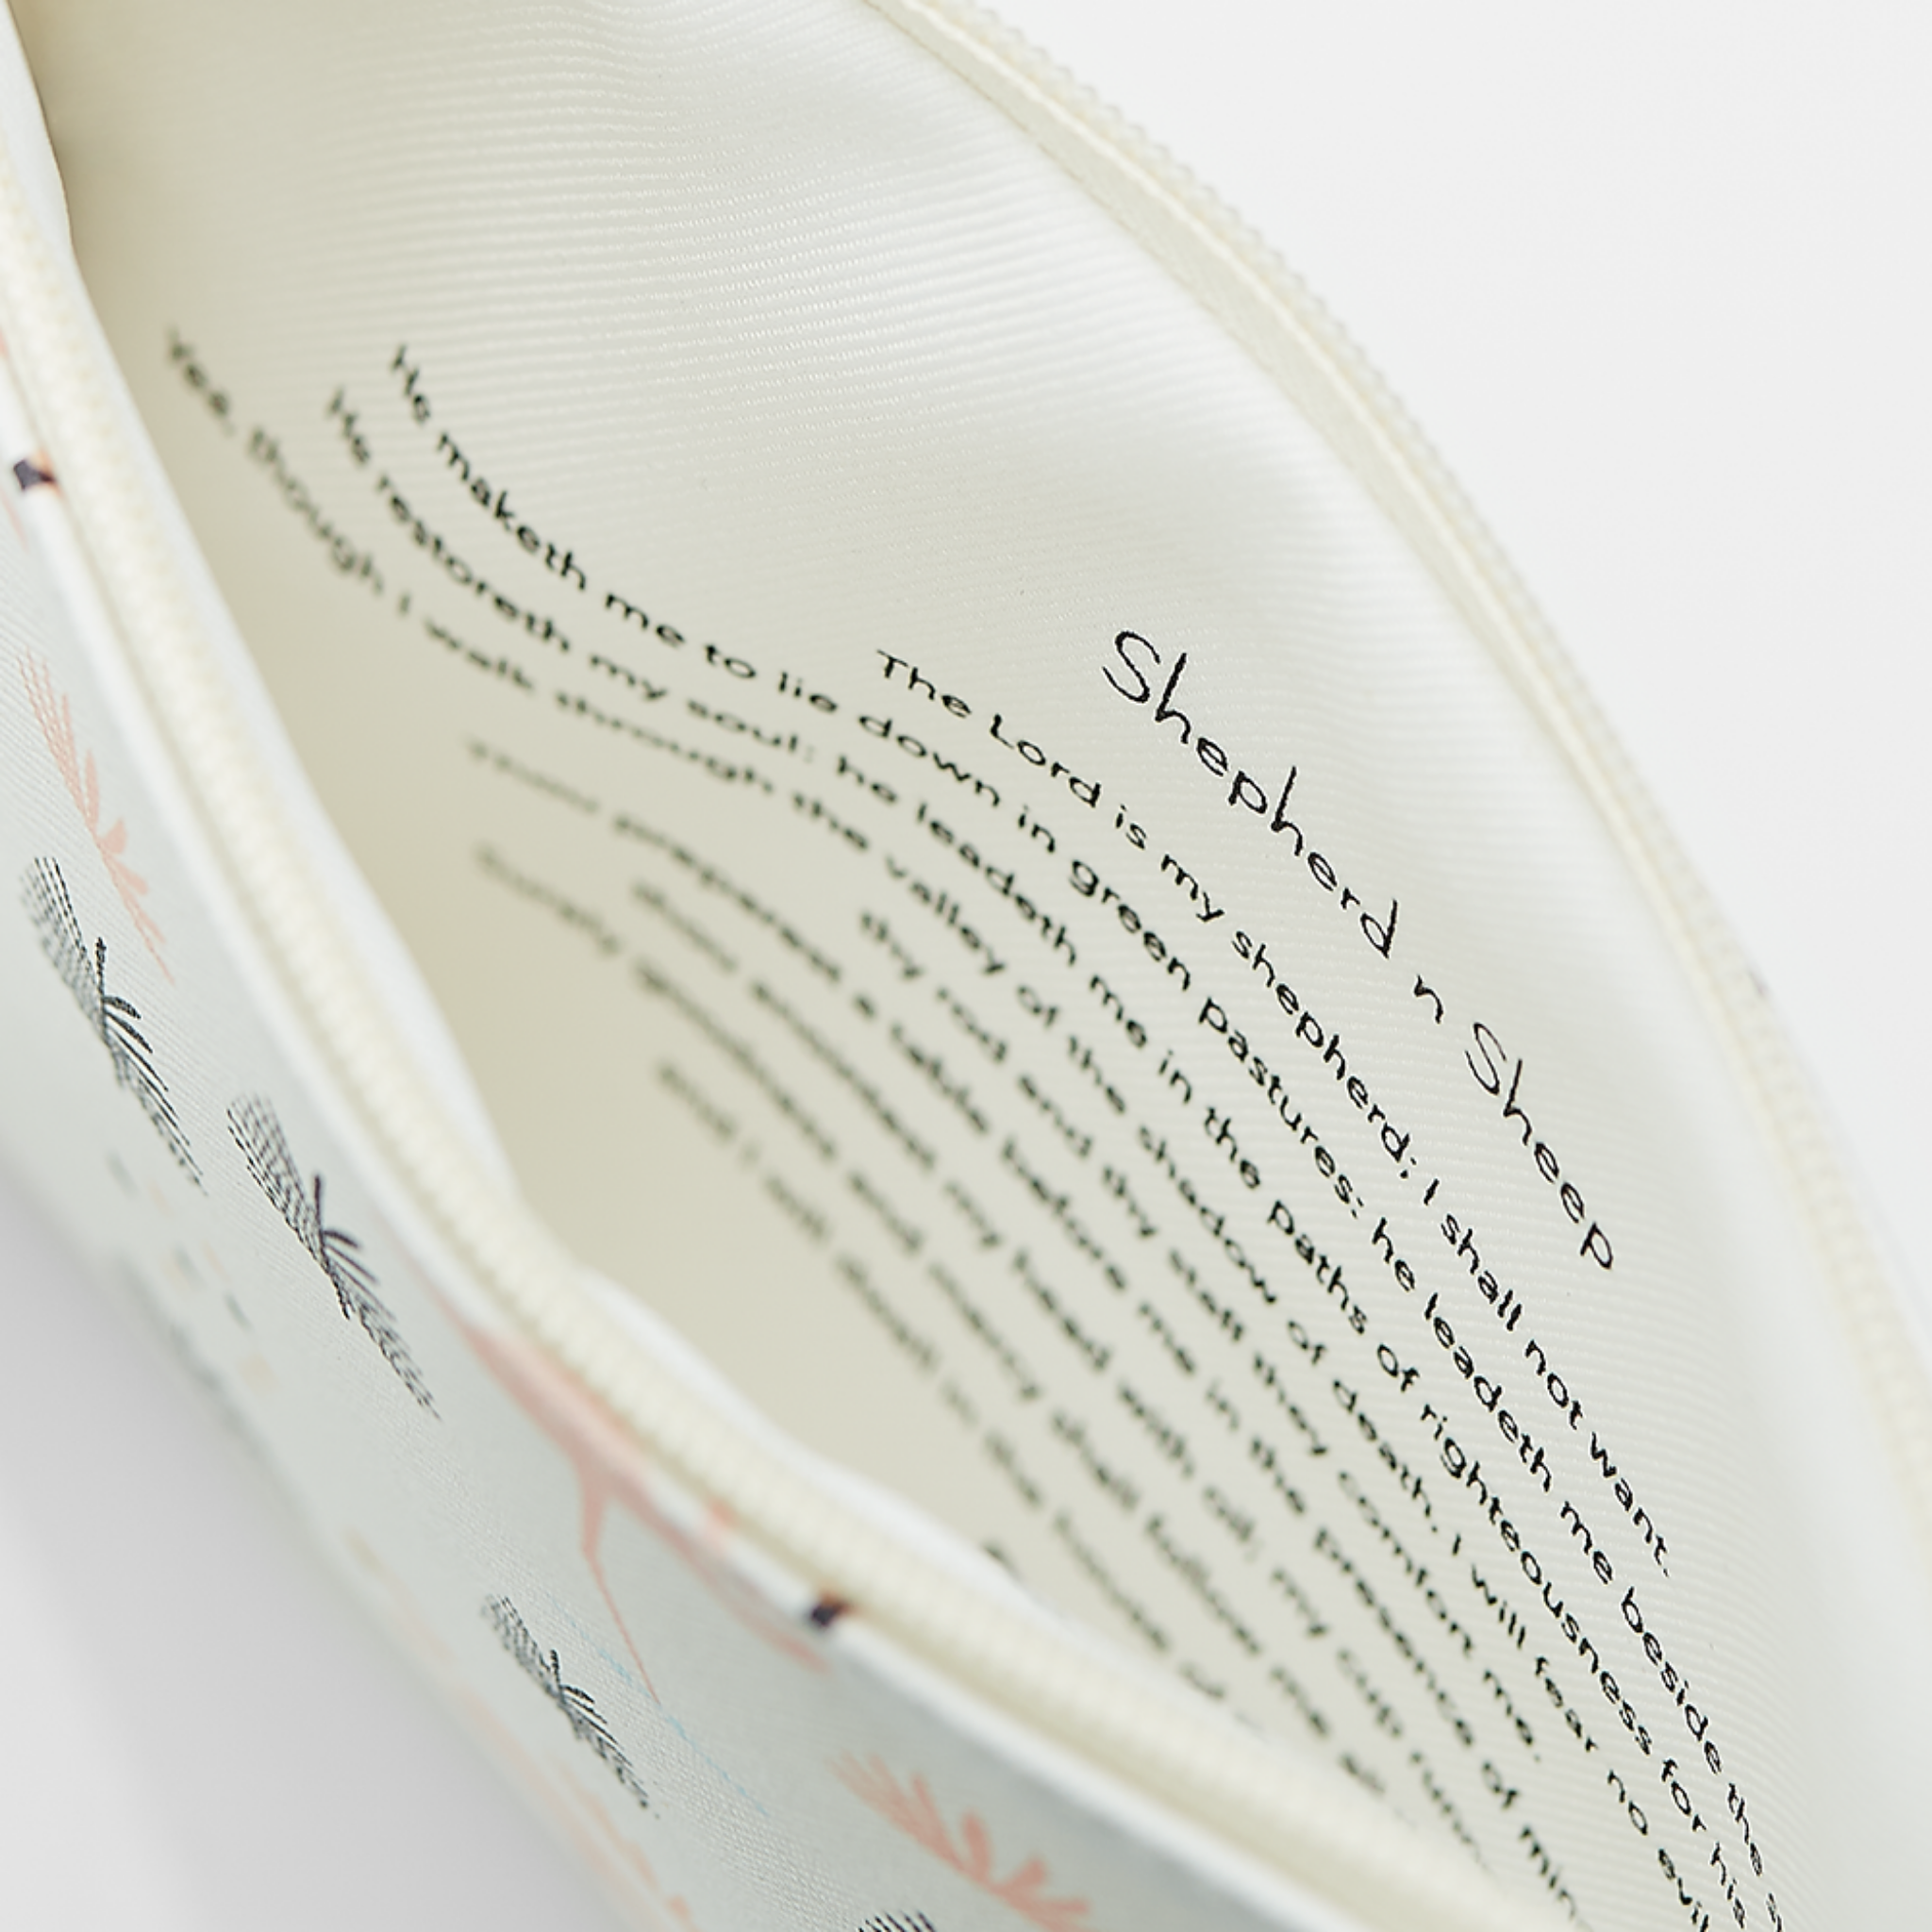 Shepherd n Sheep
The Lord is my shepherd; I shall not want.
He maketh me to lie down in green pastures: he leadeth me beside the
He restoreth my soul: he leadeth me in the paths of righteousness for his
Yea, though I walk through the valley of the shadow of death, I will fear no evil
thy rod and thy staff they comfort me.
prepares a table before me in the presence of min
my head with oil; my cup runn
Surely goodness and mercy shall follow me al
and I will dwell in the house of